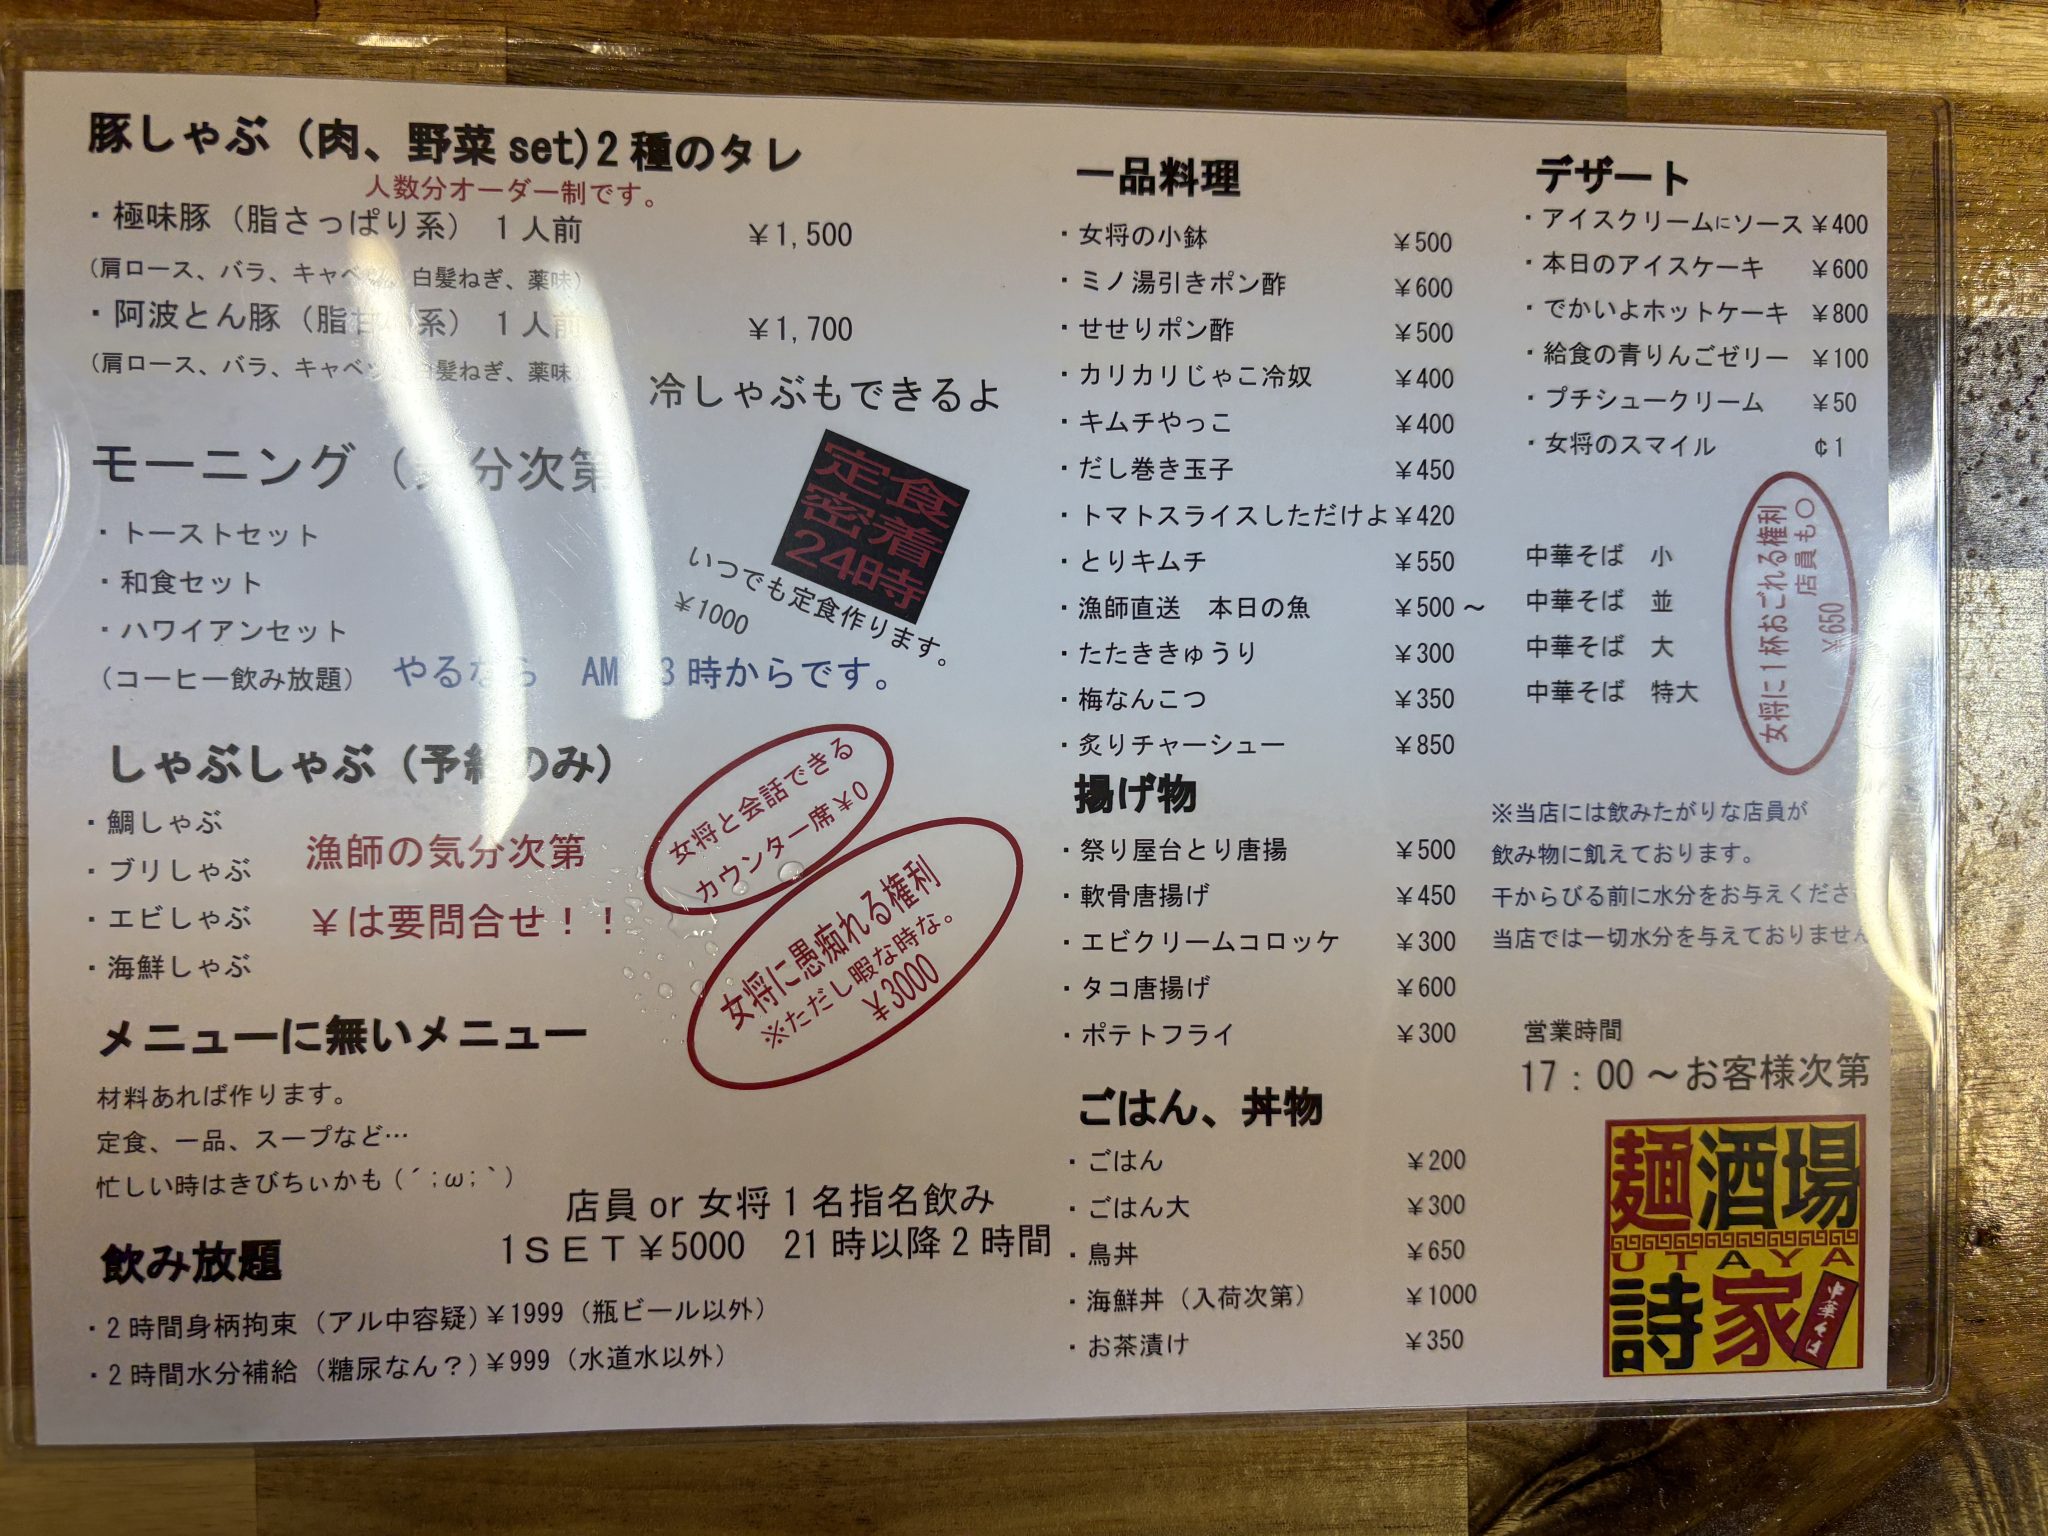 豚しゃぶ（肉、野菜set)2種のタレ
人数分オーダー制です。
・極味豚（脂さっぱり系） 1人前 ￥1,500
(肩ロース、バラ、キャベ 白髪ねぎ、薬味)
・阿波とん豚（脂 系） 1人前 ￥1,700
(肩ロース、バラ、キャベ 白髪ねぎ、薬味
冷しゃぶもできるよ
モーニング（ 分次第
・トーストセット
・和食セット
・ハワイアンセット
（コーヒー飲み放題）
定食
密着
24時
いつでも定食作ります。
￥1000
やるなら AM 3時からです。
しゃぶしゃぶ（予約のみ）
・鯛しゃぶ
・ブリしゃぶ
・エビしゃぶ
・海鮮しゃぶ
漁師の気分次第
￥は要問合せ！！
女将と会話できる
カウンター席￥0
女将に愚痴れる権利
※ただし暇な時な。
￥3000
メニューに無いメニュー
材料あれば作ります。
定食、一品、スープなど…
忙しい時はきびちぃかも(´;ω;`)
店員 or 女将1名指名飲み
1ＳＥＴ￥5000 21時以降2時間
飲み放題
・2時間身柄拘束（アル中容疑)￥1999（瓶ビール以外）
・2時間水分補給（糖尿なん？)￥999（水道水以外）
一品料理
・女将の小鉢 ￥500
・ミノ湯引きポン酢 ￥600
・せせりポン酢 ￥500
・カリカリじゃこ冷奴 ￥400
・キムチやっこ ￥400
・だし巻き玉子 ￥450
・トマトスライスしただけよ￥420
・とりキムチ ￥550
・漁師直送 本日の魚 ￥500～
・たたききゅうり ￥300
・梅なんこつ ￥350
・炙りチャーシュー ￥850
揚げ物
・祭り屋台とり唐揚 ￥500
・軟骨唐揚げ ￥450
・エビクリームコロッケ ￥300
・タコ唐揚げ ￥600
・ポテトフライ ￥300
ごはん、丼物
・ごはん ￥200
・ごはん大 ￥300
・鳥丼 ￥650
・海鮮丼（入荷次第） ￥1000
・お茶漬け ￥350
デザート
・アイスクリームにソース ￥400
・本日のアイスケーキ ￥600
・でかいよホットケーキ ￥800
・給食の青りんごゼリー ￥100
・プチシュークリーム ￥50
・女将のスマイル ￠1
中華そば 小
中華そば 並
中華そば 大
中華そば 特大
女将に1杯おごれる権利
店員も〇
￥650
※当店には飲みたがりな店員が
飲み物に飢えております。
干からびる前に水分をお与えくださ
当店では一切水分を与えておりません
営業時間
17：00～お客様次第
麺酒場
UTAYA
詩家
中華そば